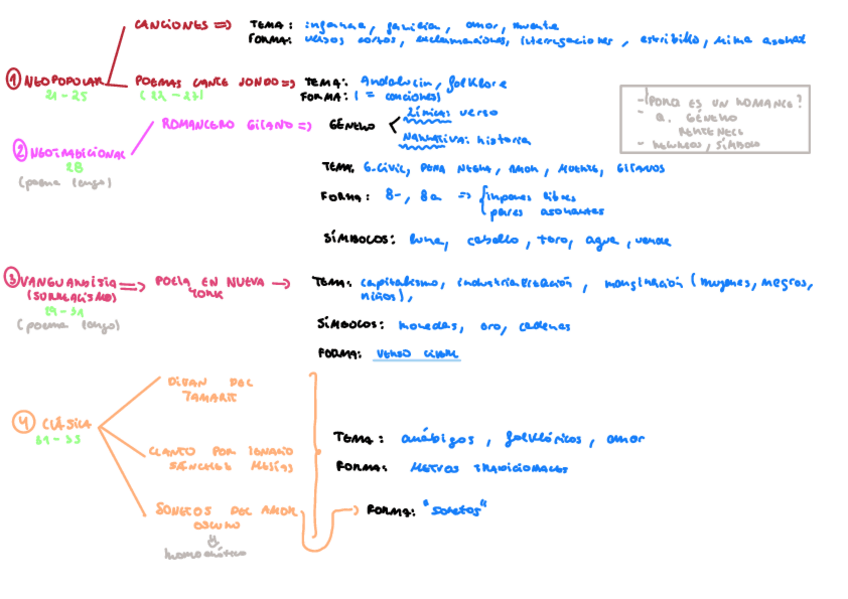 CANCIONES => TEMA: infancia, familia, amor, muerte
FORMA: versos cortos, exclamaciones, interrogaciones, estribillo, rima asonat
1 NEOPOPULAR
21-25
POEMAS CANTE JONDO => TEMA: Andalucía, folklore
(22-27)
FORMA: (= canciones)
ROMANCERO GITANO => GÉNERO
Lírica: verso
NARRATIVA: historia
2 NEOTRADICIONAL
28
(poema largo)
TEMA: G. civil, PENA NEGRA, AMOR, MUERTE, GITANOS
FORMA: 8-, 8a => impares libres
pares asonantes
SÍMBOLOS: luna, caballo, toro, agua, verde
- ¿PORQ ES UN ROMANCE?
- a. GÉNERO
PERTENECE
- RECURSOS, SÍMBOLO
3 VANGUARDISTA => POETA EN NUEVA YORK -> TEMA: capitalismo, industrialización, marginación (mujeres, negros,
(SURREALISMO)
niños),
29-31
(poema largo)
SÍMBOLOS: monedas, oro, cadenas
FORMA: VERSO LIBRE
DIVAN DEL
TAMARIT
4 CLÁSICA
31-35
LLANTO POR IGNACIO
SÁNCHEZ MEJÍAS
TEMA: arábigos, folklóricos, amor
FORMA: METROS TRADICIONALES
SONETOS DEL AMOR
OSCURO
homoerótico
-> FORMA: "sonetos"